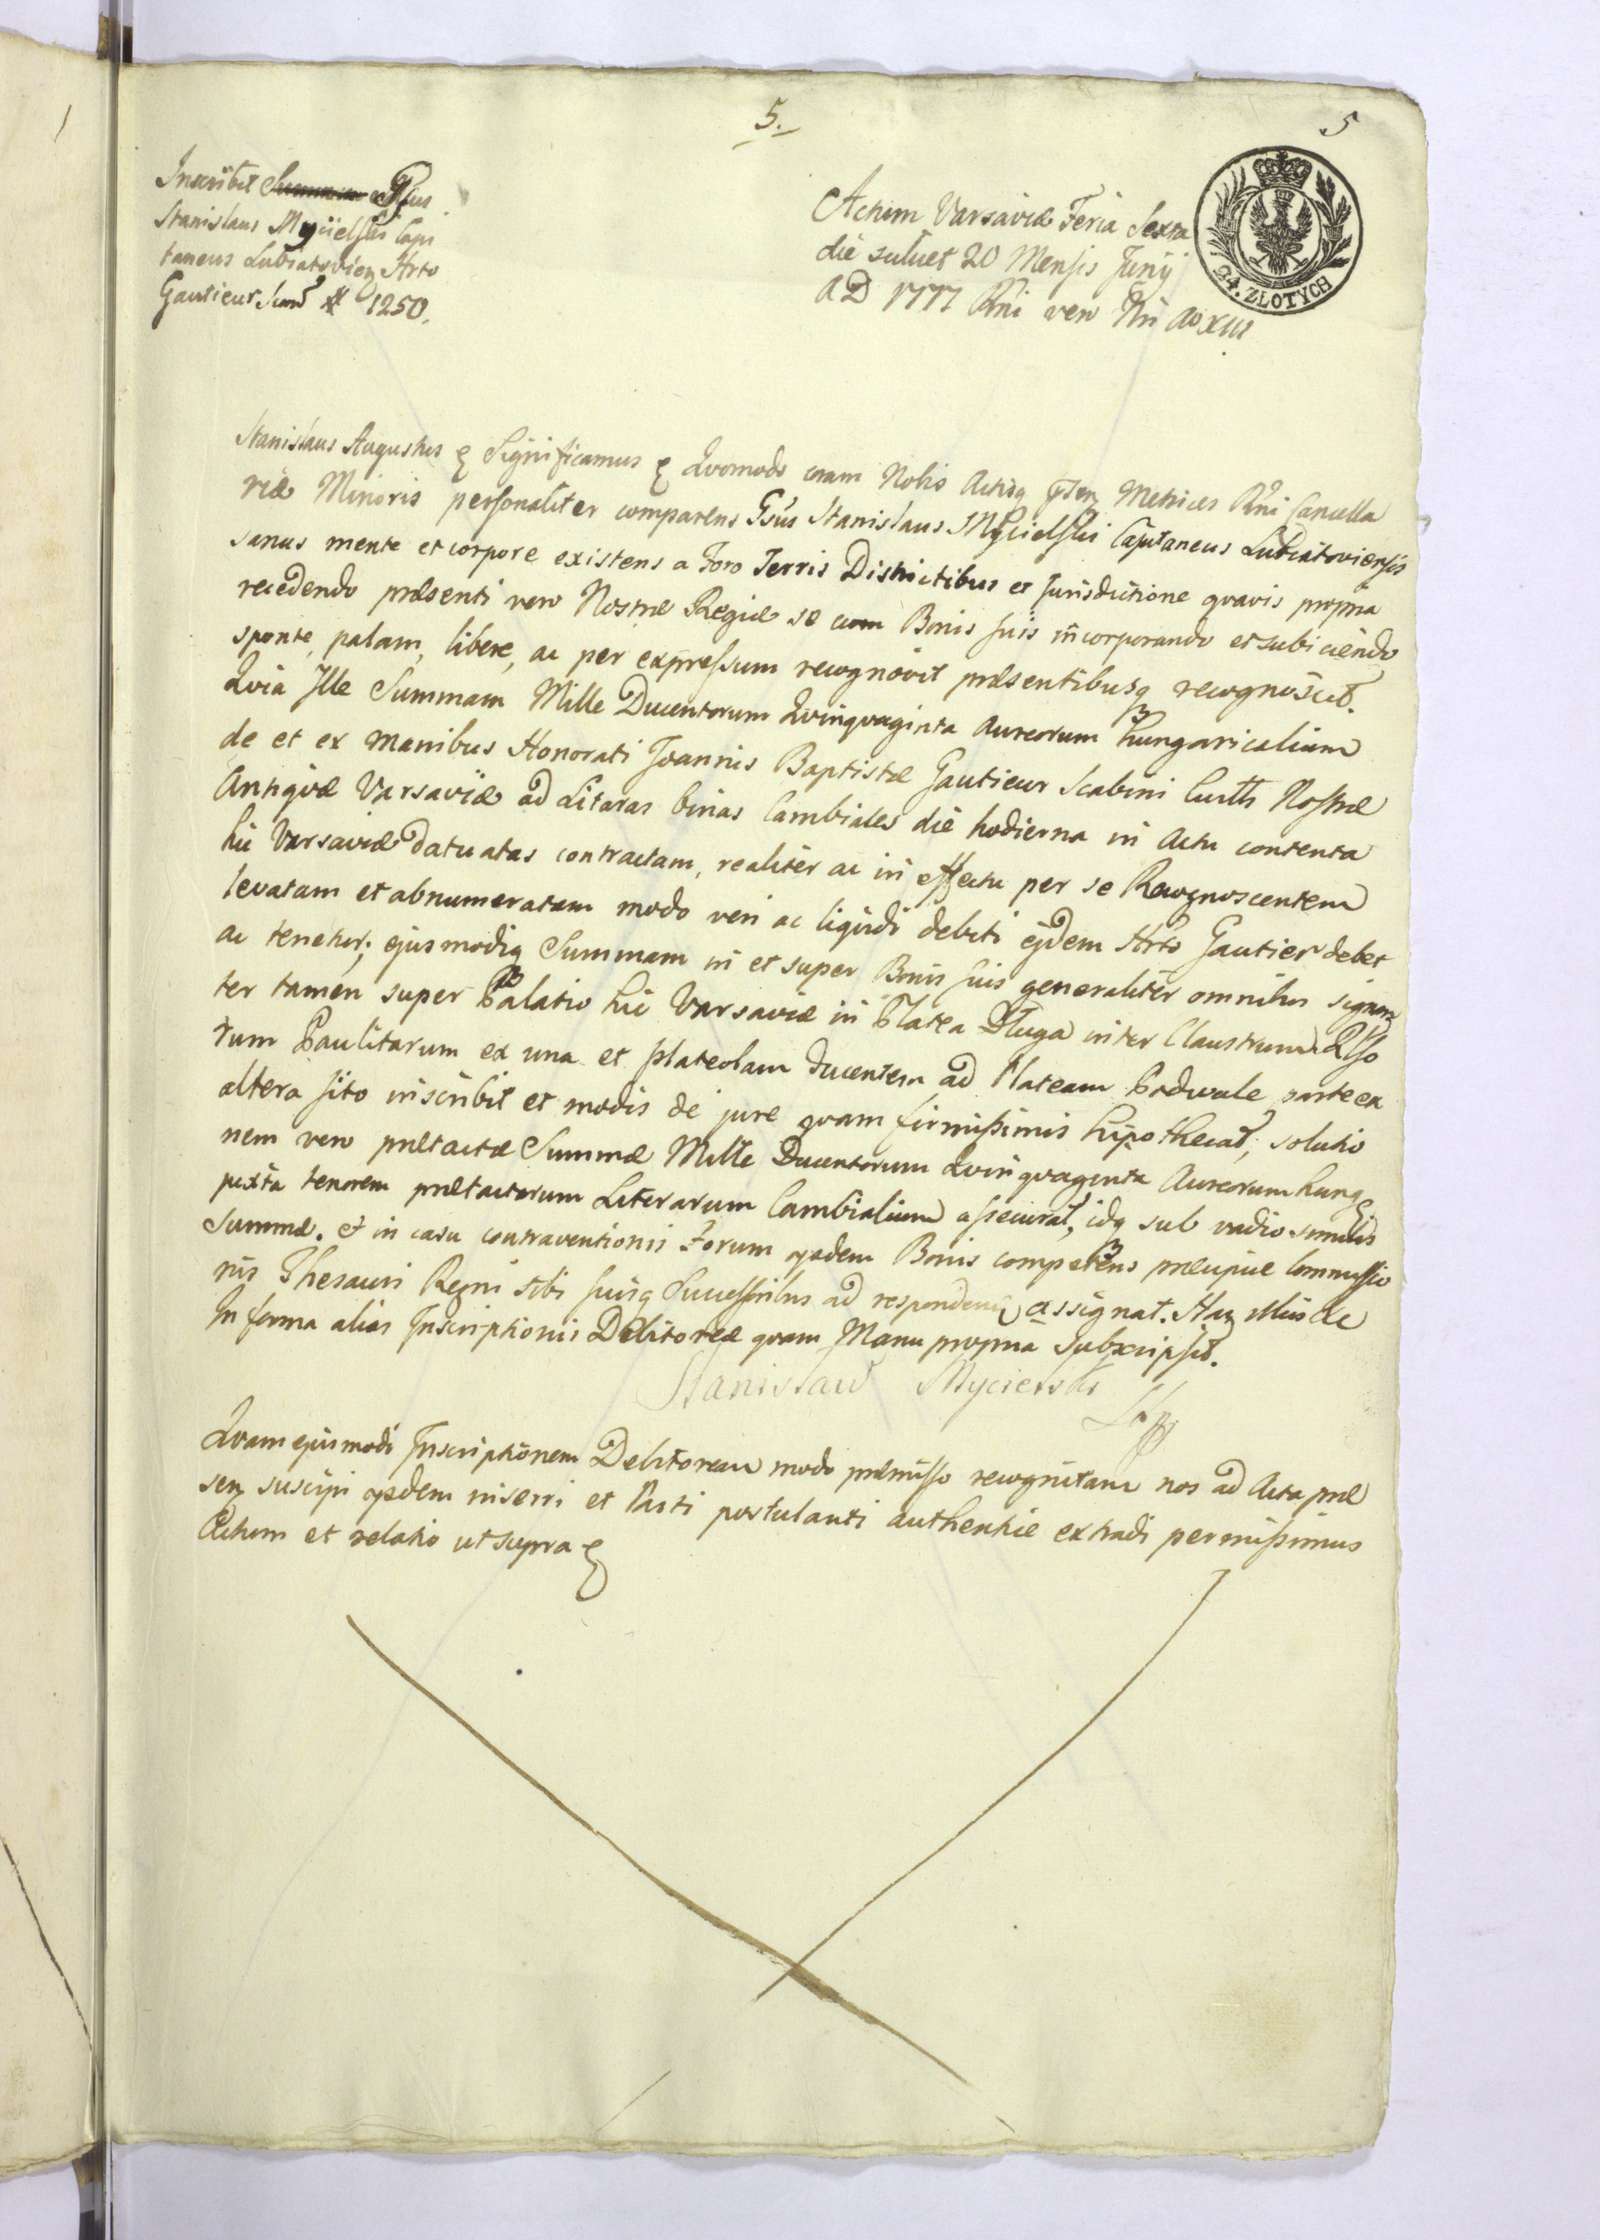 5.
5
Inscribit Gsus
Stanislaus Mycielski Capi
taneus Lubiatovien Hrto
Gautieur Sum 1250.
Actum Varsaviæ Feria Sexta
die scilicet 20 Mensis Junij
AD 1777 Rni vero Nri Ao XIII
24. ZŁOTYCH
Stanislaus Augustus Significamus Quomodo coram Nobis Actisq psen Metrices Rni Cancella
riæ Minoris personaliter comparens Gsus Stanislaus Mycielski Capitaneus Lubiatoviensis
sanus mente et corpore existens a Foro Terris Districtibus et Jurisdictione qvavis propria
recedendo præsenti vero Nostræ Regiæ se cum Bonis suis incorporando et subiciendo
sponte, palam, libere, ac per expressum recognovit præsentibusq recognoscit.
Qvia Ille Summam Mille Ducentorum Qvinqvaginta Aureorum Hungaricalium
de et ex Manibus Honorati Joannis Baptistæ Gautieur Scabini Cuittis Nostræ
Antiqvæ Varsaviæ ad Literas binas Cambiales die hodierna in Actu contenta
hic Varsaviæ datuatas contractam, realiter ac in effectu per se Recognoscentem
levatam et abnumeratam modo veri ac liqvidi debiti ejdem Hrto Gautier debet
ac tenetur; ejusmodiq Summam in et super Bonis suis generaliter omnibus signan
ter tamen super Palatio hic Varsaviæ in Platea Długa inter Claustrum Rlso
rum Paulitarum ex una et plateolam ducentem ad Plateam Podwale parte ex
altera sito inscribit et modis de jure qvam firmissimis hipothecat, solutio
nem vero prætactæ Summæ Mille Ducentorum Qvinqvaginta Aureorum Hung
juxta tenorem prætactarum Literarum Cambialium assecurat, idq sub vadio similis
summæ. Et in casu contraventionis Forum qsdem Bonis competens præcipue Commissio
nis Thesauri Regni sibi suisq Successoribus ad respondend assignat. Haz
In forma alias Inscriptionis Debitoreæ qvam Manu propria subscripsit.
Stanisław Mycielski
Qvam ejusmodi Inscriptionem Debitoream modo præmisso recognitam nos ad Acta præ
sen suscipi qsdem inseri et Parti postulanti authentice extradi permissimus
Actum et relatio ut supra